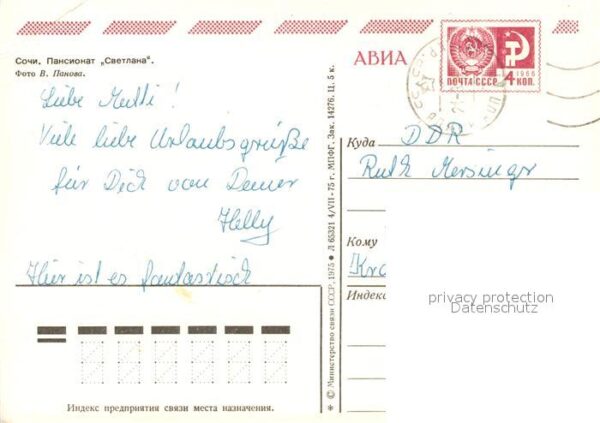 Сочи. Пансионат „Светлана".
Фото В. Панова.
Liebe Mutti!
Viele liebe Urlaubsgrüße
für Dich von Deiner
Helly
Hier ist es fantastisch
Индекс предприятия связи места назначения.
* © Министерство связи СССР, 1975 ● Л 65321 4/VII-75 г. МПФГ. Зак. 14276. Ц. 5 к.
АВИА
ПОЧТА СССР 1966 4 КОП.
Куда DDR
Ruth
Кому
Индекс
privacy protection
Datenschutz